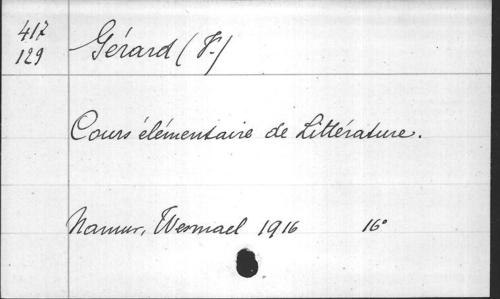 417
129
Gérard (V.)
Cours élémentaire de Littérature.
Namur, Wesmael 1916 16°